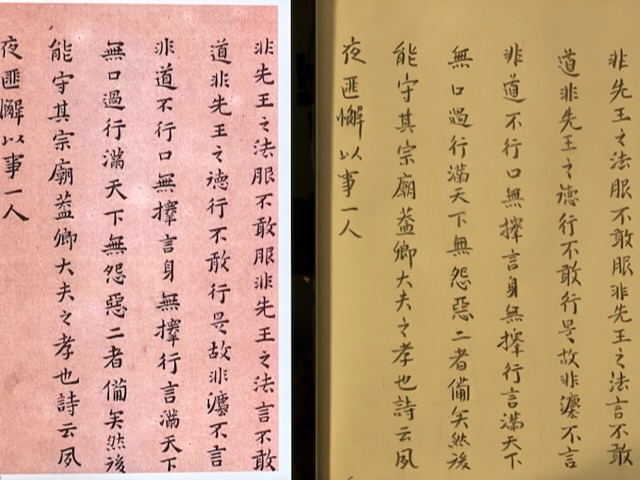 非先王之法服不敢服非先王之法言不敢
道非先王之德行不敢行是故非灋不言
非道不行口無擇言身無擇行言滿天下
無口過行滿天下無怨惡二者備矣然後
能守其宗廟葢卿大夫之孝也詩云夙
夜匪懈以事一人
非先王之法服不敢服非先王之法言不敢
道非先王之德行不敢行是故非灋不言
非道不行口無擇言身無擇行言滿天下
無口過行滿天下無怨惡二者備矣然後
能守其宗廟葢卿大夫之孝也詩云夙
夜匪懈以事一人